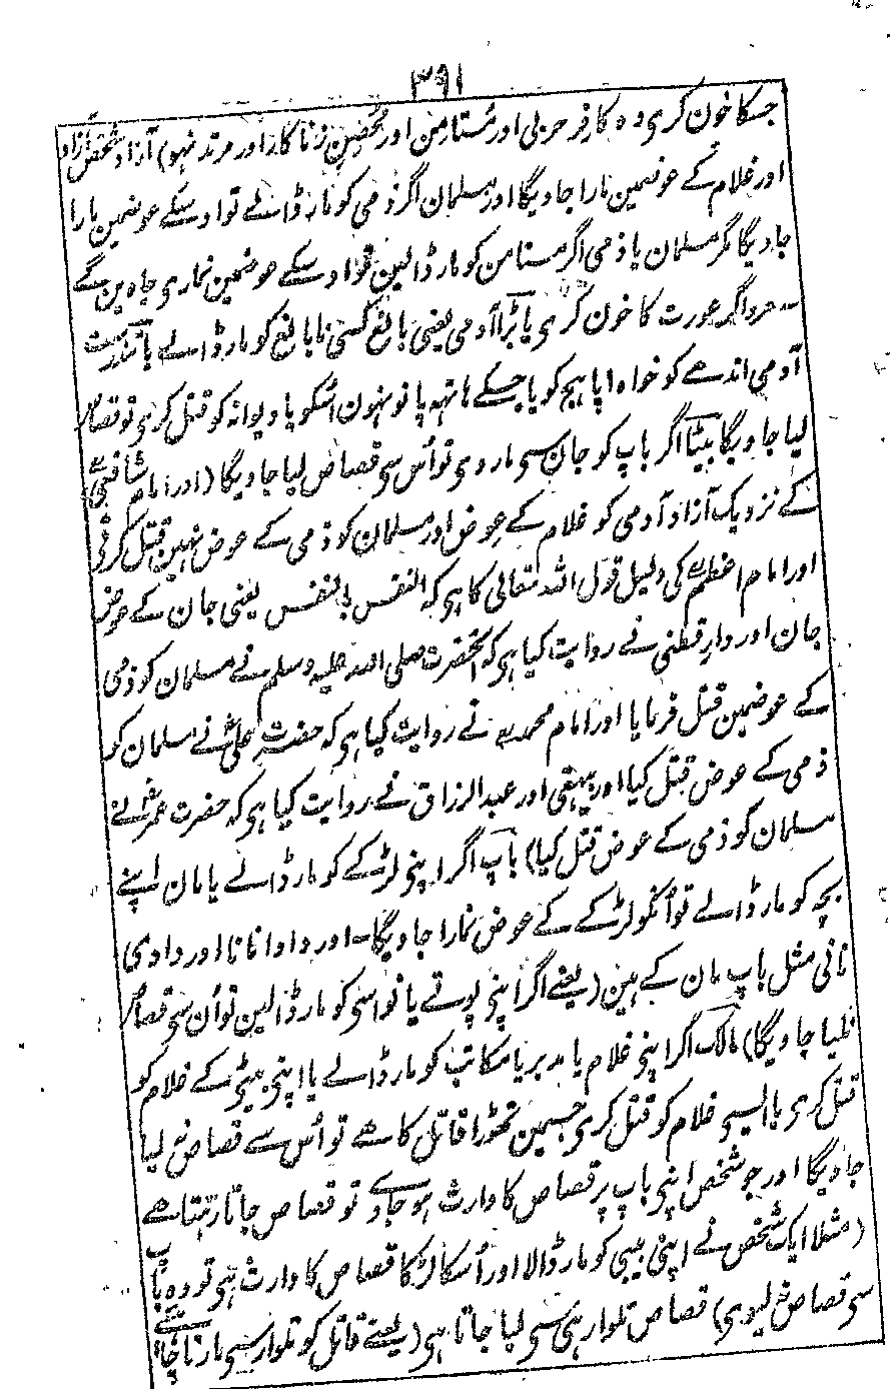 ۳۹۱
جسکا خون کری وہ کافر حربی اور مستامن اور محصن زنا کار اور مرتد نہو) آزاد شخص آزاد
اور غلام کے عوضمین مارا جاویگا اور مسلمان اگر ذمی کو مار ڈالے تو اوسکے عوضمین مارا
جاویگا مگر مسلمان یا ذمی اگر مستامن کو مار ڈالین تو اوسکے عوضمین نماری جاوین گے
مرد اگر عورت کا خون کری یا بڑا آدمی یعنی بالغ کسی نابالغ کو مار ڈالے یا تندرست
آدمی اندھے کو خواہ اپاہج کو یا جسکے ہاتہہ پانو نہون اسکو یا دیوانہ کو قتل کری تو قصاص
لیا جاویگا بیٹا اگر باپ کو جان سی مار دی تو اس سی قصاص لیا جاویگا (اور امام شافعیؒ
کے نزدیک آزاد آدمی کو غلام کے عوض اور مسلمان کو ذمی کے عوض نہین قتل کرتی
اور امام اعظمؒ کی دلیل قول اللہ تعالی کا ہی کہ النفس بالنفس یعنی جان کے عوض
جان اور دارقطنی نے روایت کیا ہی کہ آنحضرت صلی اللہ علیہ وسلم نے مسلمان کو ذمی
کے عوضمین قتل فرمایا اور امام محمدؒ نے روایت کیا ہی کہ حضرت علیؓ نے مسلمان کو
ذمی کے عوض قتل کیا اور بیہقی اور عبدالرزاق نے روایت کیا ہی کہ حضرت عمرؓ نے
مسلمان کو ذمی کے عوض قتل کیا) باپ اگر اپنی لڑکے کو مار ڈالے یا مان اپنے
بچہ کو مار ڈالے تو انکو لڑکے کے عوض نمارا جاویگا اور دادا نانا اور دادی
نانی مثل باپ مان کے ہین (یعنے اگر اپنی پوتے یا نواسی کو مار ڈالین تو ان سی قصاص
نلیا جاویگا) مالک اگر اپنی غلام یا مدبر یا مکاتب کو مار ڈالے یا اپنی بیٹی کے غلام کو
قتل کری یا ایسی غلام کو قتل کری جسمین تھوڑا قاتل کا ہے تو اس سے قصاص نہ لیا
جاویگا اور جو شخص اپنی باپ پر قصاص کا وارث ہو جاوے تو قصاص جاتا رہتا ہے
(مثلا ایک شخص نے اپنی بیبی کو مار ڈالا اور اسکا لڑکا قصاص کا وارث ہی تو وہ باپ
سی قصاص نہ لیوی) قصاص تلوار ہی سی لیا جاتا ہی (یعنے قاتل کو تلوار سی مارنا چاہیے